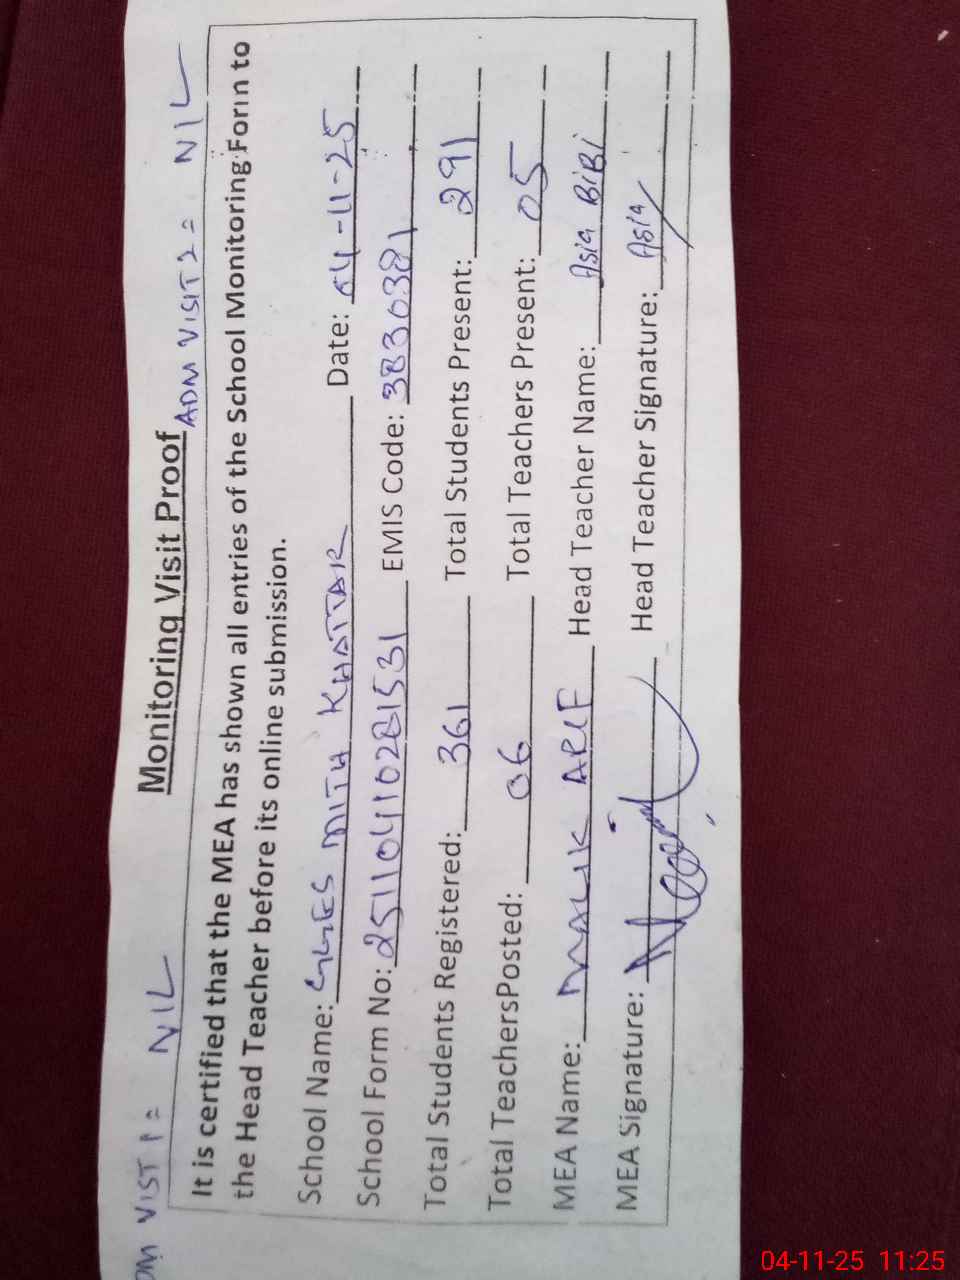 VISIT 1 = NIL ADM VISIT 2 = NIL
Monitoring Visit Proof
It is certified that the MEA has shown all entries of the School Monitoring Form to
the Head Teacher before its online submission.
School Name: GGES MITH KHATTAR Date: 04-11-25
School Form No: 251104110281531 EMIS Code: 3830381
Total Students Registered: 361 Total Students Present: 291
Total TeachersPosted: 06 Total Teachers Present: 05
MEA Name: MALIK ARIF Head Teacher Name: Asia BiBi
MEA Signature: Head Teacher Signature: Asia
04-11-25 11:25